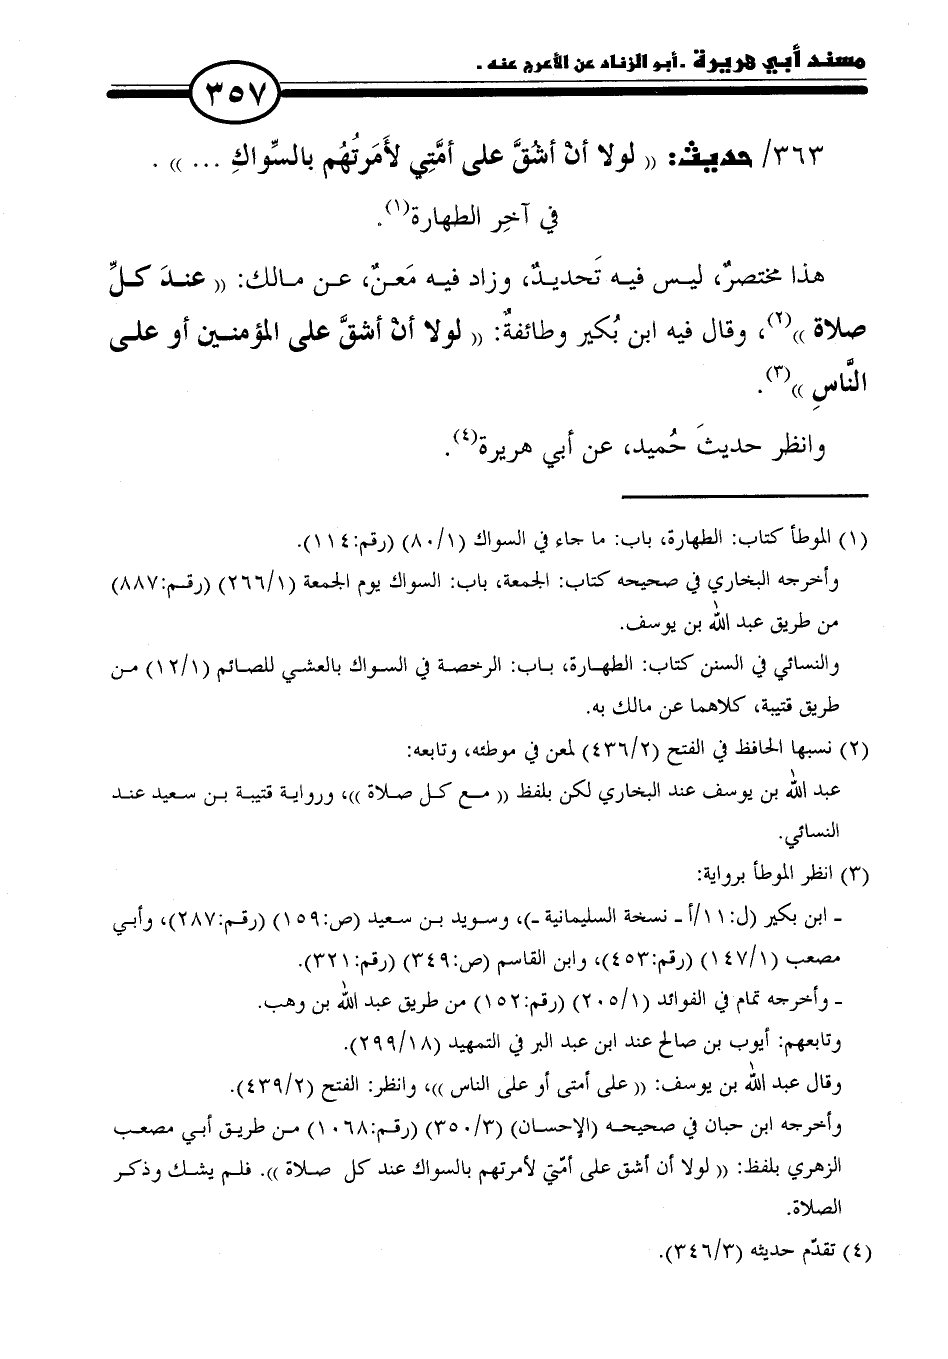 مسند أبي هريرة - أبو الزناد عن الأعرج عنه -
٣٥٧
٣٦٣/ حديث: « لولا أنْ أشُقَّ على أمَّتِي لأمَرتُهُم بالسِّواكِ ... » .
في آخِر الطهارة(١).
هذا مختصرٌ، ليس فيه تَحديدٌ، وزاد فيه مَعنٌ، عن مالك: « عندَ كلِّ
صلاة »(٢)، وقال فيه ابن بُكير وطائفةٌ: « لولا أنْ أشقَّ على المؤمنين أو على
النَّاسِ »(٣).
وانظر حديثَ حُميد، عن أبي هريرة(٤).
(١) الموطأ كتاب: الطهارة، باب: ما جاء في السواك (٨٠/١) (رقم:١١٤).
وأخرجه البخاري في صحيحه كتاب: الجمعة، باب: السواك يوم الجمعة (٢٦٦/١) (رقم:٨٨٧)
من طريق عبد الله بن يوسف.
والنسائي في السنن كتاب: الطهارة، باب: الرخصة في السواك بالعشي للصائم (١٢/١) من
طريق قتيبة، كلاهما عن مالك به.
(٢) نسبها الحافظ في الفتح (٤٣٦/٢) لمعن في موطئه، وتابعه:
عبد الله بن يوسف عند البخاري لكن بلفظ « مع كل صلاة »، ورواية قتيبة بن سعيد عند
النسائي.
(٣) انظر الموطأ برواية:
- ابن بكير (ل:١١/أ - نسخة السليمانية -)، وسويد بن سعيد (ص:١٥٩) (رقم:٢٨٧)، وأبي
مصعب (١٤٧/١) (رقم:٤٥٣)، وابن القاسم (ص:٣٤٩) (رقم:٣٢١).
- وأخرجه تمام في الفوائد (٢٠٥/١) (رقم:١٥٢) من طريق عبد الله بن وهب.
وتابعهم: أيوب بن صالح عند ابن عبد البر في التمهيد (٢٩٩/١٨).
وقال عبد الله بن يوسف: « على أمتى أو على الناس »، وانظر: الفتح (٤٣٩/٢).
وأخرجه ابن حبان في صحيحه (الإحسان) (٣٥٠/٣) (رقم:١٠٦٨) من طريق أبي مصعب
الزهري بلفظ: « لولا أن أشق على أمّتي لأمرتهم بالسواك عند كل صلاة ». فلم يشك وذكر
الصلاة.
(٤) تقدّم حديثه (٣٤٦/٣).